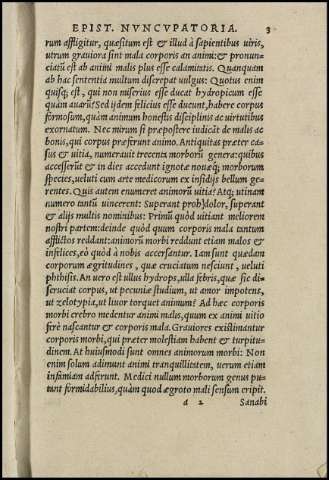 EPIST. NVNCVPATORIA. 3
rum affligitur, quæsitum est & illud à sapientibus uiris,
utrum grauiora sint mala corporis an animi: & pronun-
ciatū est ab animi malis plus esse calamitatis. Quanquam
ab hac sententia multum discrepat uulgus: Quotus enim
quisq; est, qui non miserius esse ducat hydropicum esse
quàm auarū? Sed ijdem felicius esse ducunt, habere corpus
formosum, quàm animum honestis disciplinis ac uirtutibus
exornatum. Nec mirum si præpostere iudicāt de malis ac
bonis, qui corpus præferunt animo. Antiquitas præter ca-
sus & uitia, numerauit trecenta morborū genera: quibus
accesserūt & in dies accedunt ignotæ nouæq; morborum
species, ueluti cum arte medicorum ex insidijs bellum ge-
rentes. Quis autem enumeret animorū uitia? Atq; utinam
numero tantū uincerent: Superant proh dolor, superant
& alijs multis nominibus: Primū quòd uitiant meliorem
nostri partem: deinde quòd quum corporis mala tantum
afflictos reddant: animorū morbi reddunt etiam malos &
infelices, eò quòd à nobis accersantur. Iam sunt quædam
corporum ægritudines, quæ cruciatum nesciunt, ueluti
phthisis. An uero est ullus hydrops, ulla febris, quæ sic di-
scruciat corpus, ut pecuniæ studium, ut amor impotens,
ut zelotypia, ut liuor torquet animum? Ad hæc corporis
morbi crebro medentur animi malis, quum ex animi uitio
ferè nascantur & corporis mala. Grauiores existimantur
corporis morbi, qui præter molestiam habent & turpitu-
dinem. At huiusmodi sunt omnes animorum morbi: Non
enim solum adimunt animi tranquillitatem, uerum etiam
infamiam adferunt. Medici nullum morborum genus pu-
tant formidabilius, quàm quod ægroto mali sensum eripit.
a 2 Sanabi